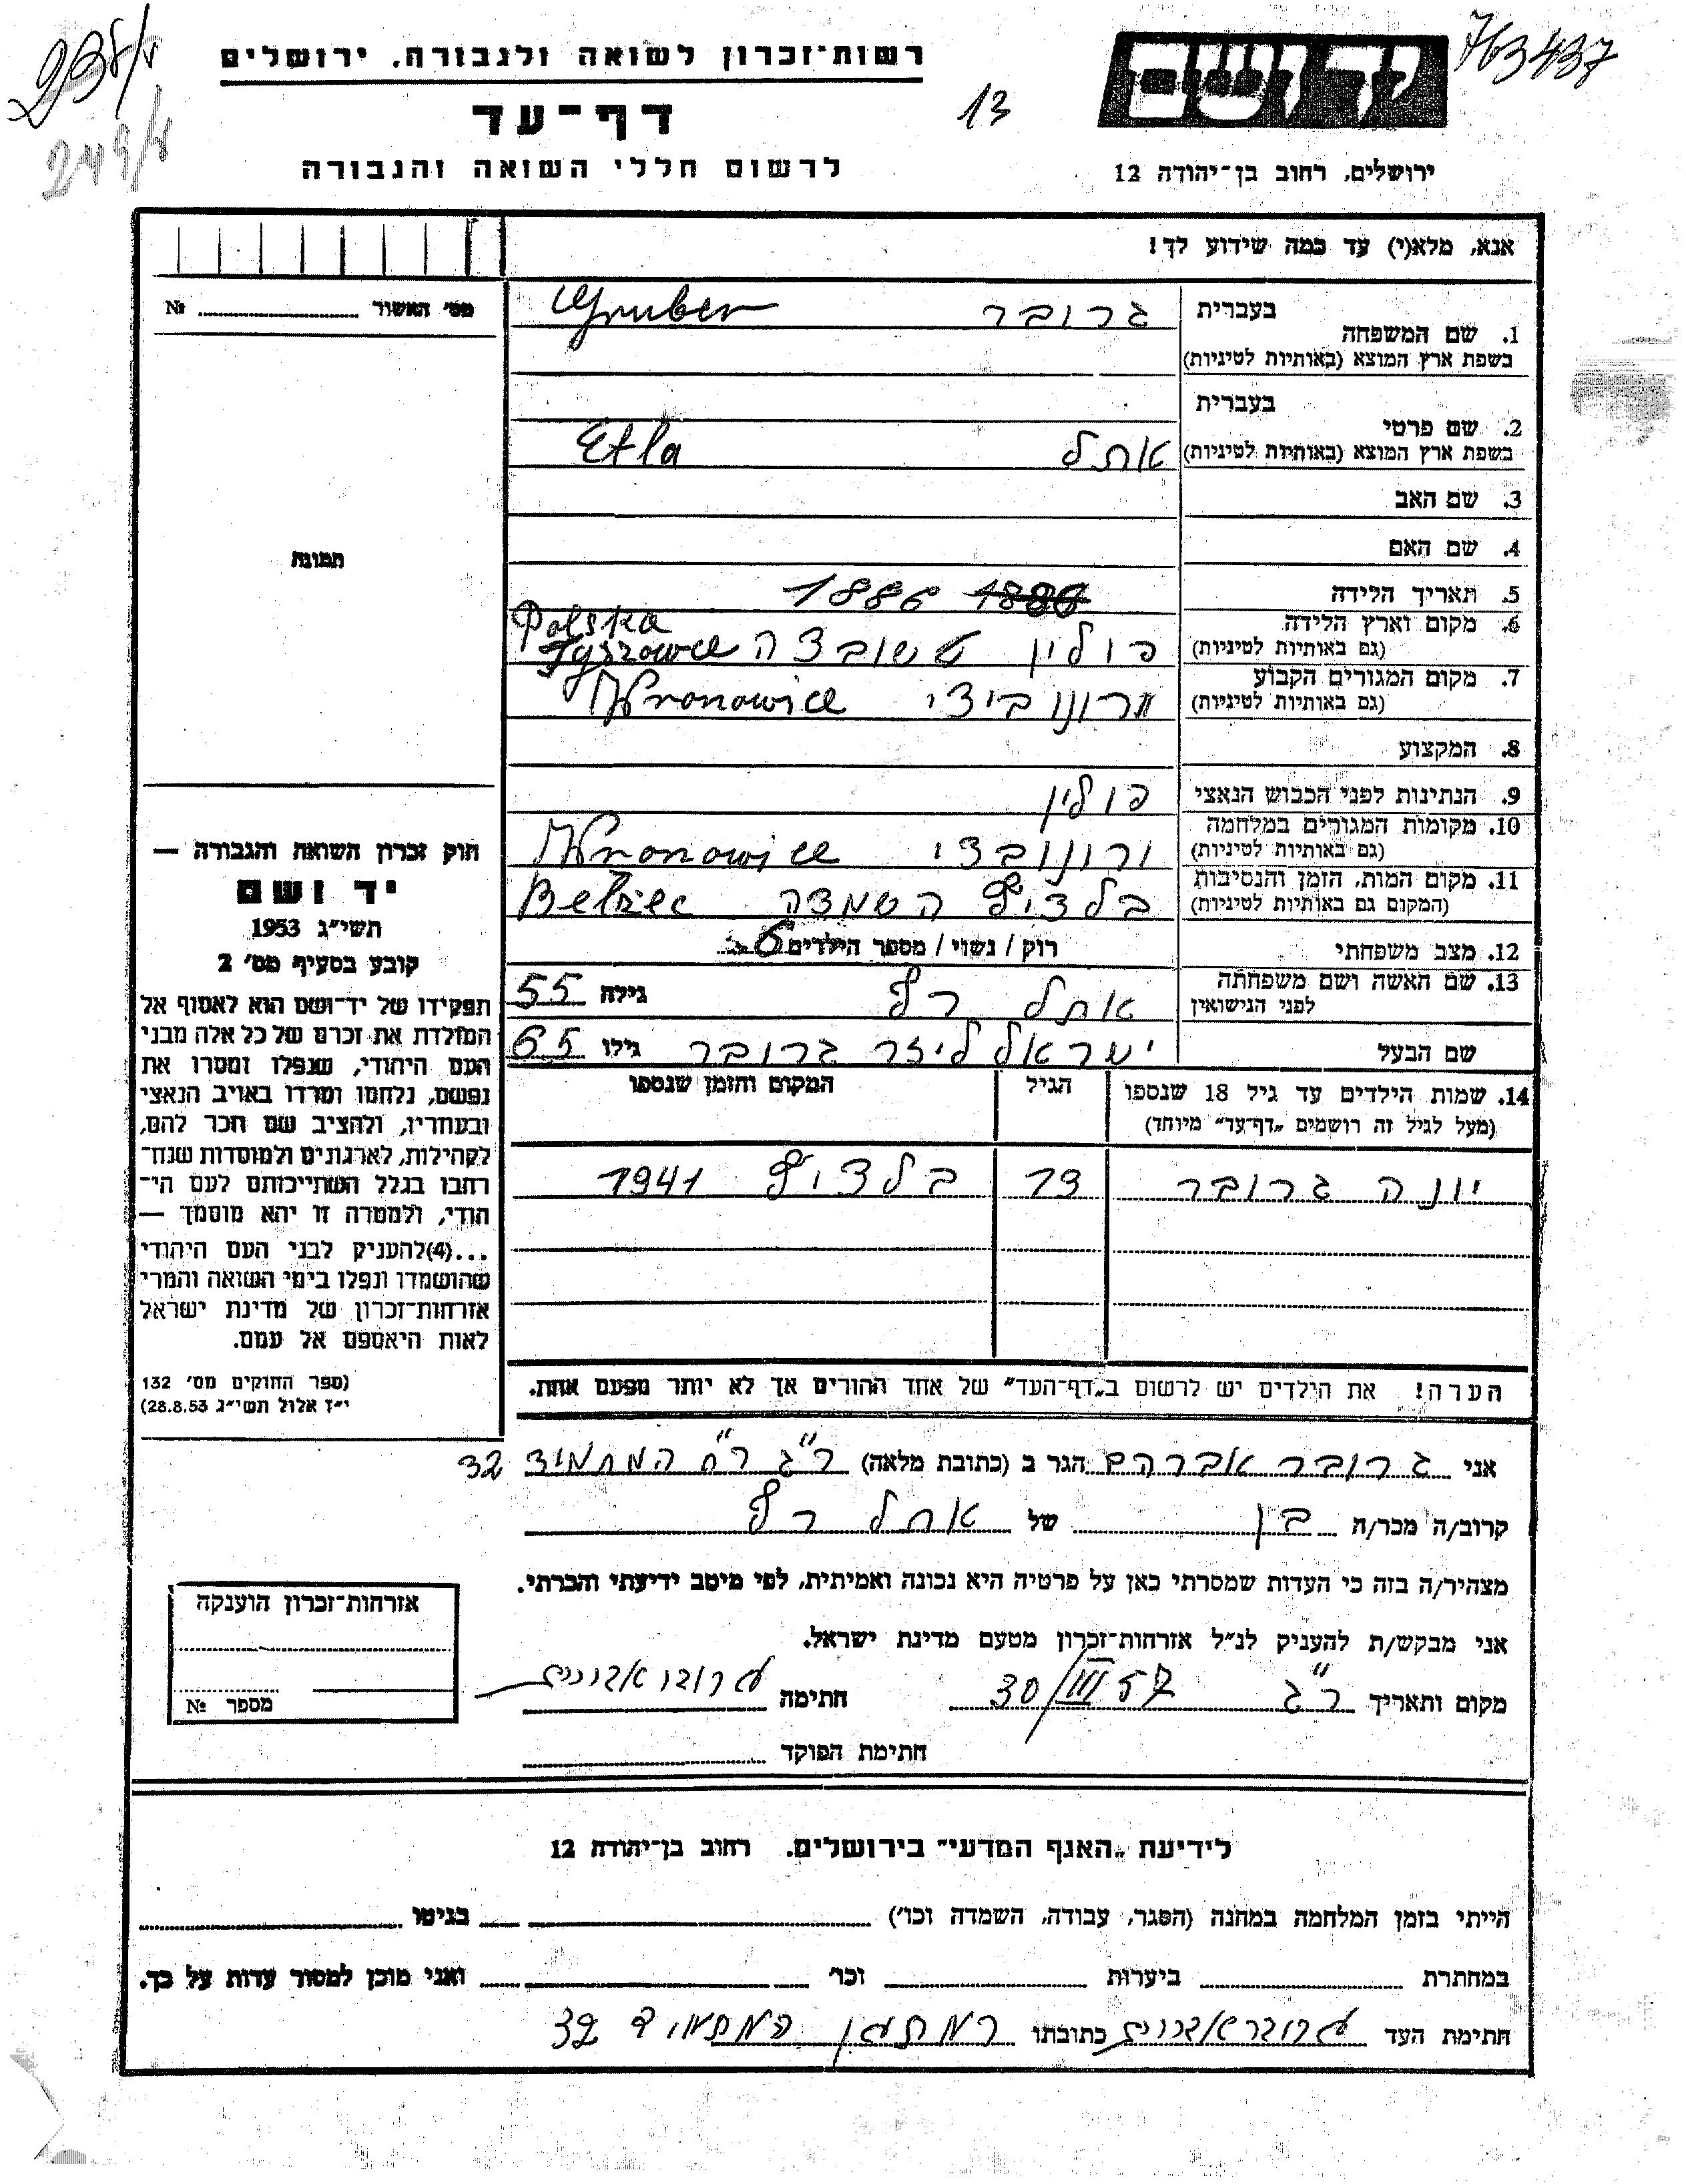 רשות־זכרון לשואה ולגבורה, ירושלים
דף־עד
לרשום חללי השואה והגבורה
13
יד ושם
763437
ירושלים, רחוב בן־יהודה 12
אנא, מלא(י) עד כמה שידוע לך!
מס׳ האשור № 
1. שם המשפחה בעברית גרובר Gruber
בשפת ארץ המוצא (באותיות לטיניות)
בעברית
2. שם פרטי
בשפת ארץ המוצא (באותיות לטיניות) אתל Etla
3. שם האב
4. שם האם
תמונה
5. תאריך הלידה 1886 1886
6. מקום וארץ הלידה Polska
(גם באותיות לטיניות) פולין טשובצה Tyszowce
7. מקום המגורים הקבוע
(גם באותיות לטיניות) ורונוביצי Wronowice
8. המקצוע
9. הנתינות לפני הכבוש הנאצי פולין
10. מקומות המגורים במלחמה
(גם באותיות לטיניות) ורונובצי Wronowice
11. מקום המות, הזמן והנסיבות
(המקום גם באותיות לטיניות) בלציץ השמדה Belżec
12. מצב משפחתי רוק / נשוי / מספר הילדים 6
13. שם האשה ושם משפחתה
לפני הנישואין אתל רף גילה 55
שם הבעל ישראל ליזר גרובר גילו 65
14. שמות הילדים עד גיל 18 שנספו הגיל המקום והזמן שנספו
(מעל לגיל זה רושמים „דף־עד״ מיוחד)
יונה גרובר 13 בלציץ 1941
הערה! את הילדים יש לרשום ב„דף־העד״ של אחד ההורים אך לא יותר מפעם אחת.
חוק זכרון השואה והגבורה —
יד ושם
תשי״ג 1953
קובע בסעיף מס׳ 2
תפקידו של יד־ושם הוא לאסוף אל
המולדת את זכרם של כל אלה מבני
העם היהודי, שנפלו ומסרו את
נפשם, נלחמו ומרדו באויב הנאצי
ובעוזריו, ולהציב שם וזכר להם,
לקהילות, לארגונים ולמוסדות שנח־
רבו בגלל השתייכותם לעם הי־
הודי, ולמטרה זו יהא מוסמך —
...(4)להעניק לבני העם היהודי
שהושמדו ונפלו בימי השואה והמרי
אזרחות־זכרון של מדינת ישראל
לאות היאספם אל עמם.
(ספר החוקים מס׳ 132
י״ז אלול תשי״ג 28.8.53)
אני גרובר אברהם הגר ב (כתובת מלאה) ר״ג רח המתמיד 32
קרוב/ה מכר/ה בן של אתל רף
מצהיר/ה בזה כי העדות שמסרתי כאן על פרטיה היא נכונה ואמיתית, לפי מיטב ידיעתי והכרתי.
אני מבקש/ת להעניק לנ״ל אזרחות־זכרון מטעם מדינת ישראל.
מקום ותאריך ר״ג 30/III 57 חתימה גרובר אברהם
חתימת הפוקד
אזרחות־זכרון הוענקה
מספר №
לידיעת „האגף המדעי״ בירושלים. רחוב בן־יהודה 12
הייתי בזמן המלחמה במחנה (הסגר, עבודה, השמדה וכו׳) בגיטו
במחתרת ביערות וכו׳ ואני מוכן למסור עדות על כך.
חתימת העד גרובר אברהם כתובתו רמת גן המתמיד 32